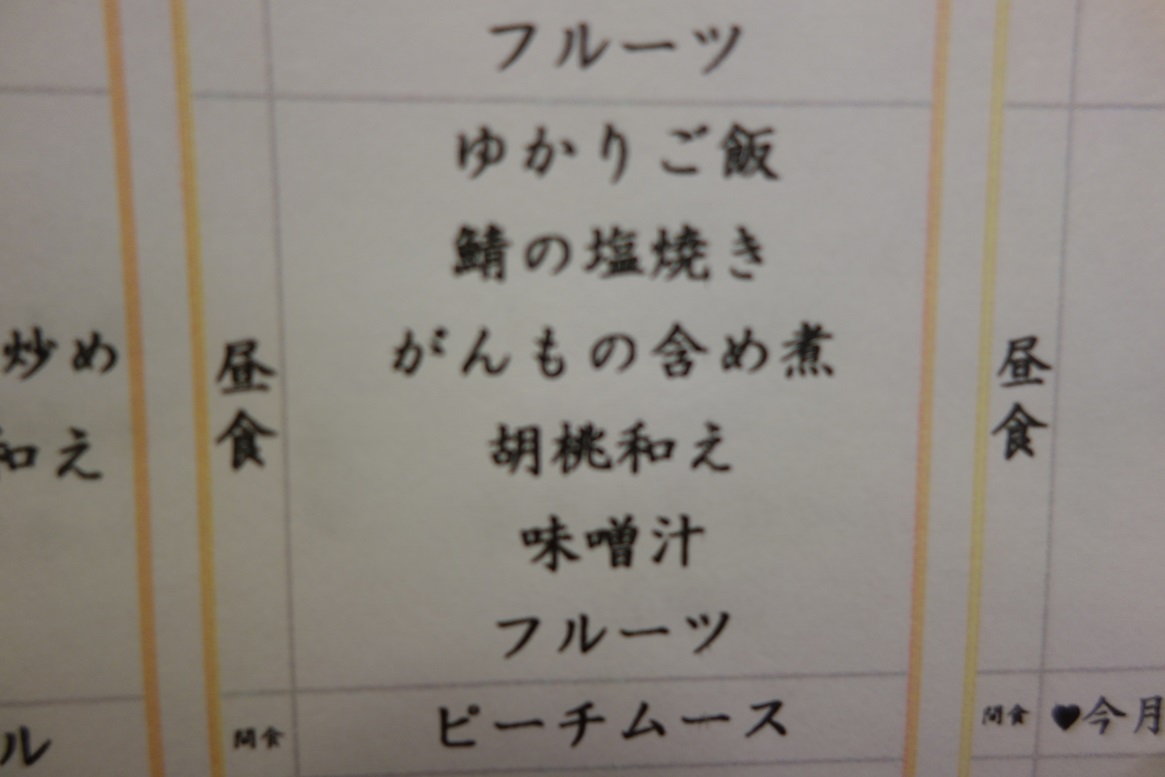 フルーツ
ゆかりご飯
鯖の塩焼き
がんもの含め煮
胡桃和え
味噌汁
フルーツ
ピーチムース
炒め
和え
ル
昼食
間食
昼食
間食
♥今月